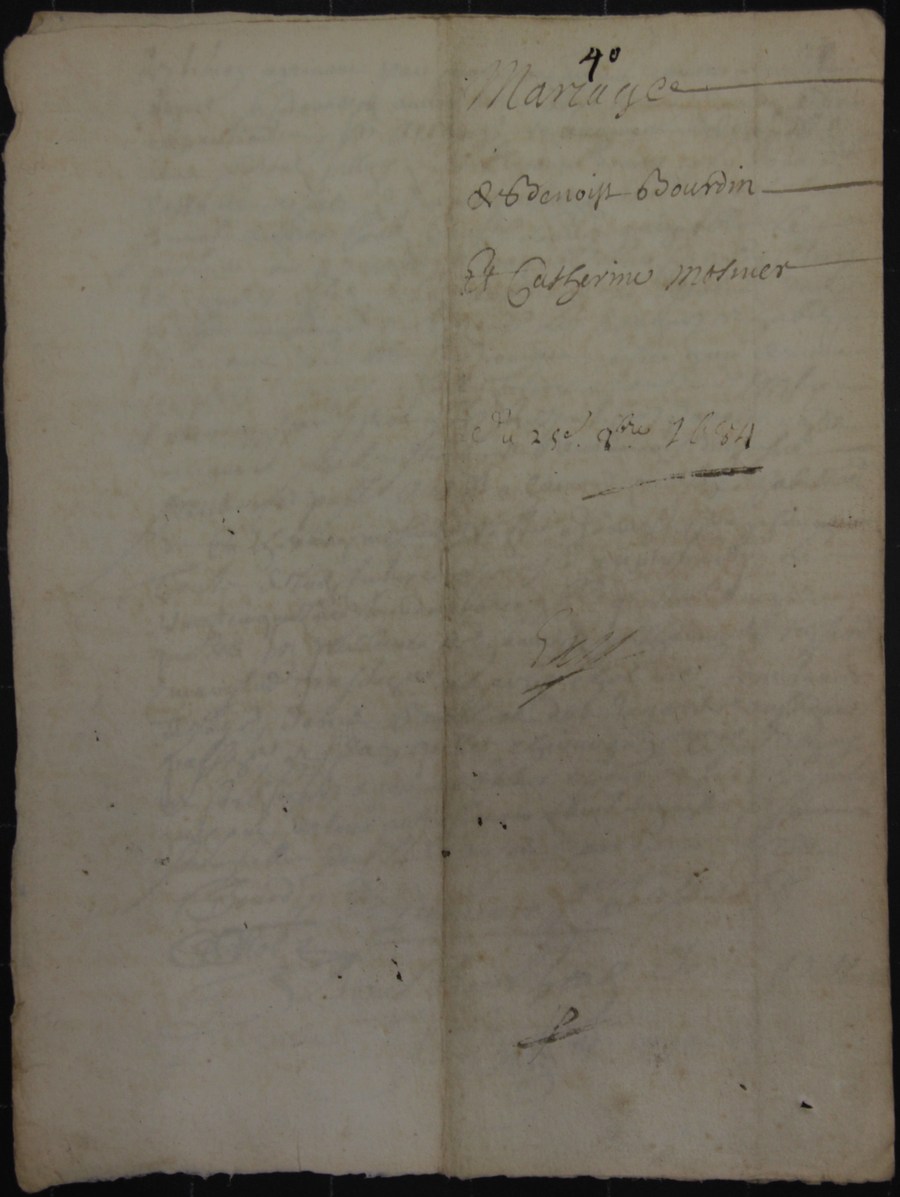 4°
Mariage
De Benoist Bourdin
Et Catherine mosnier
Du 25e 8bre 1684